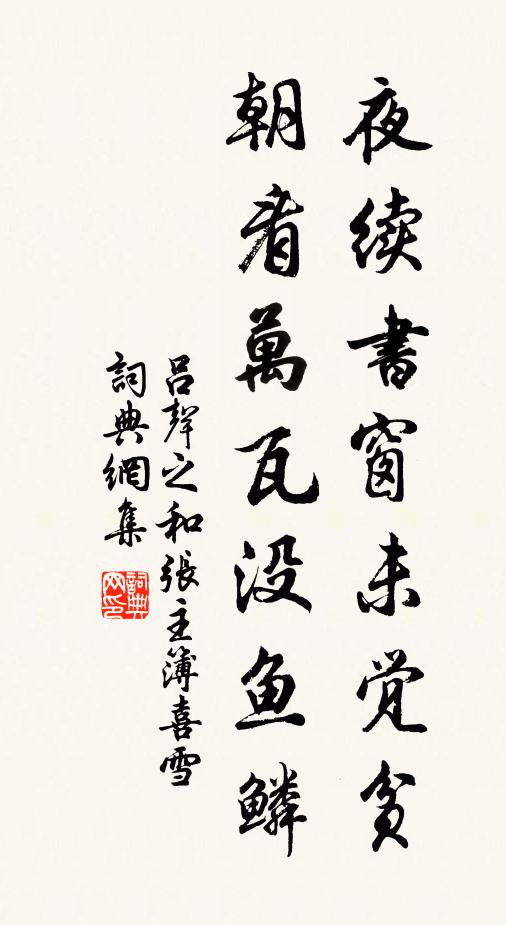 夜续書窗未觉贫
朝看萬瓦没鱼鳞
吕聲之和張主簿喜雪
詞典網集
詞典网印